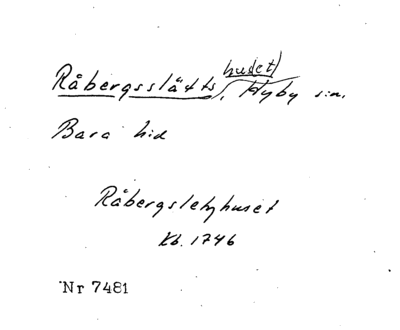 Råbergsslätts(huset), Hyby sn.
Bara hd
Råbergsletzhuset
Kb. 1746
Nr 7481